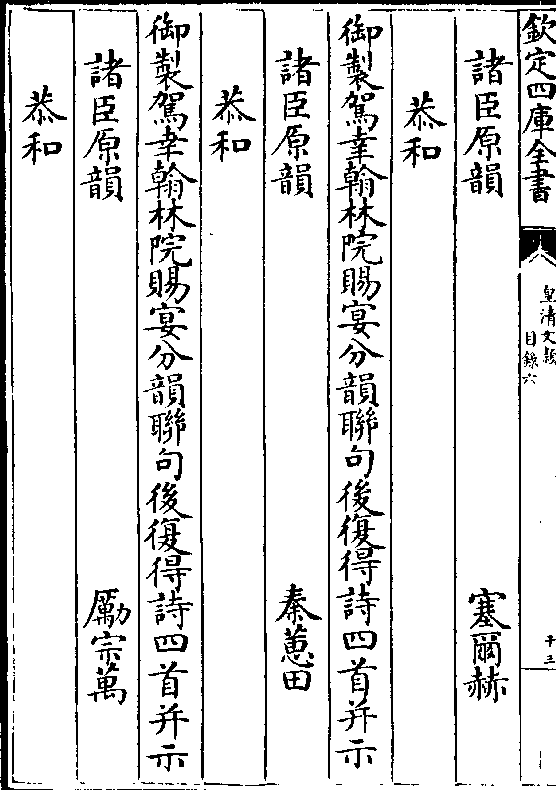 欽定四庫全書
皇清文穎
目錄六
十三
諸臣原韻 塞爾赫
恭和
御製駕幸翰林院賜宴分韻聯句後復得詩四首并示
諸臣原韻 秦蕙田
恭和
御製駕幸翰林院賜宴分韻聯句後復得詩四首并示
諸臣原韻 勵宗萬
恭和